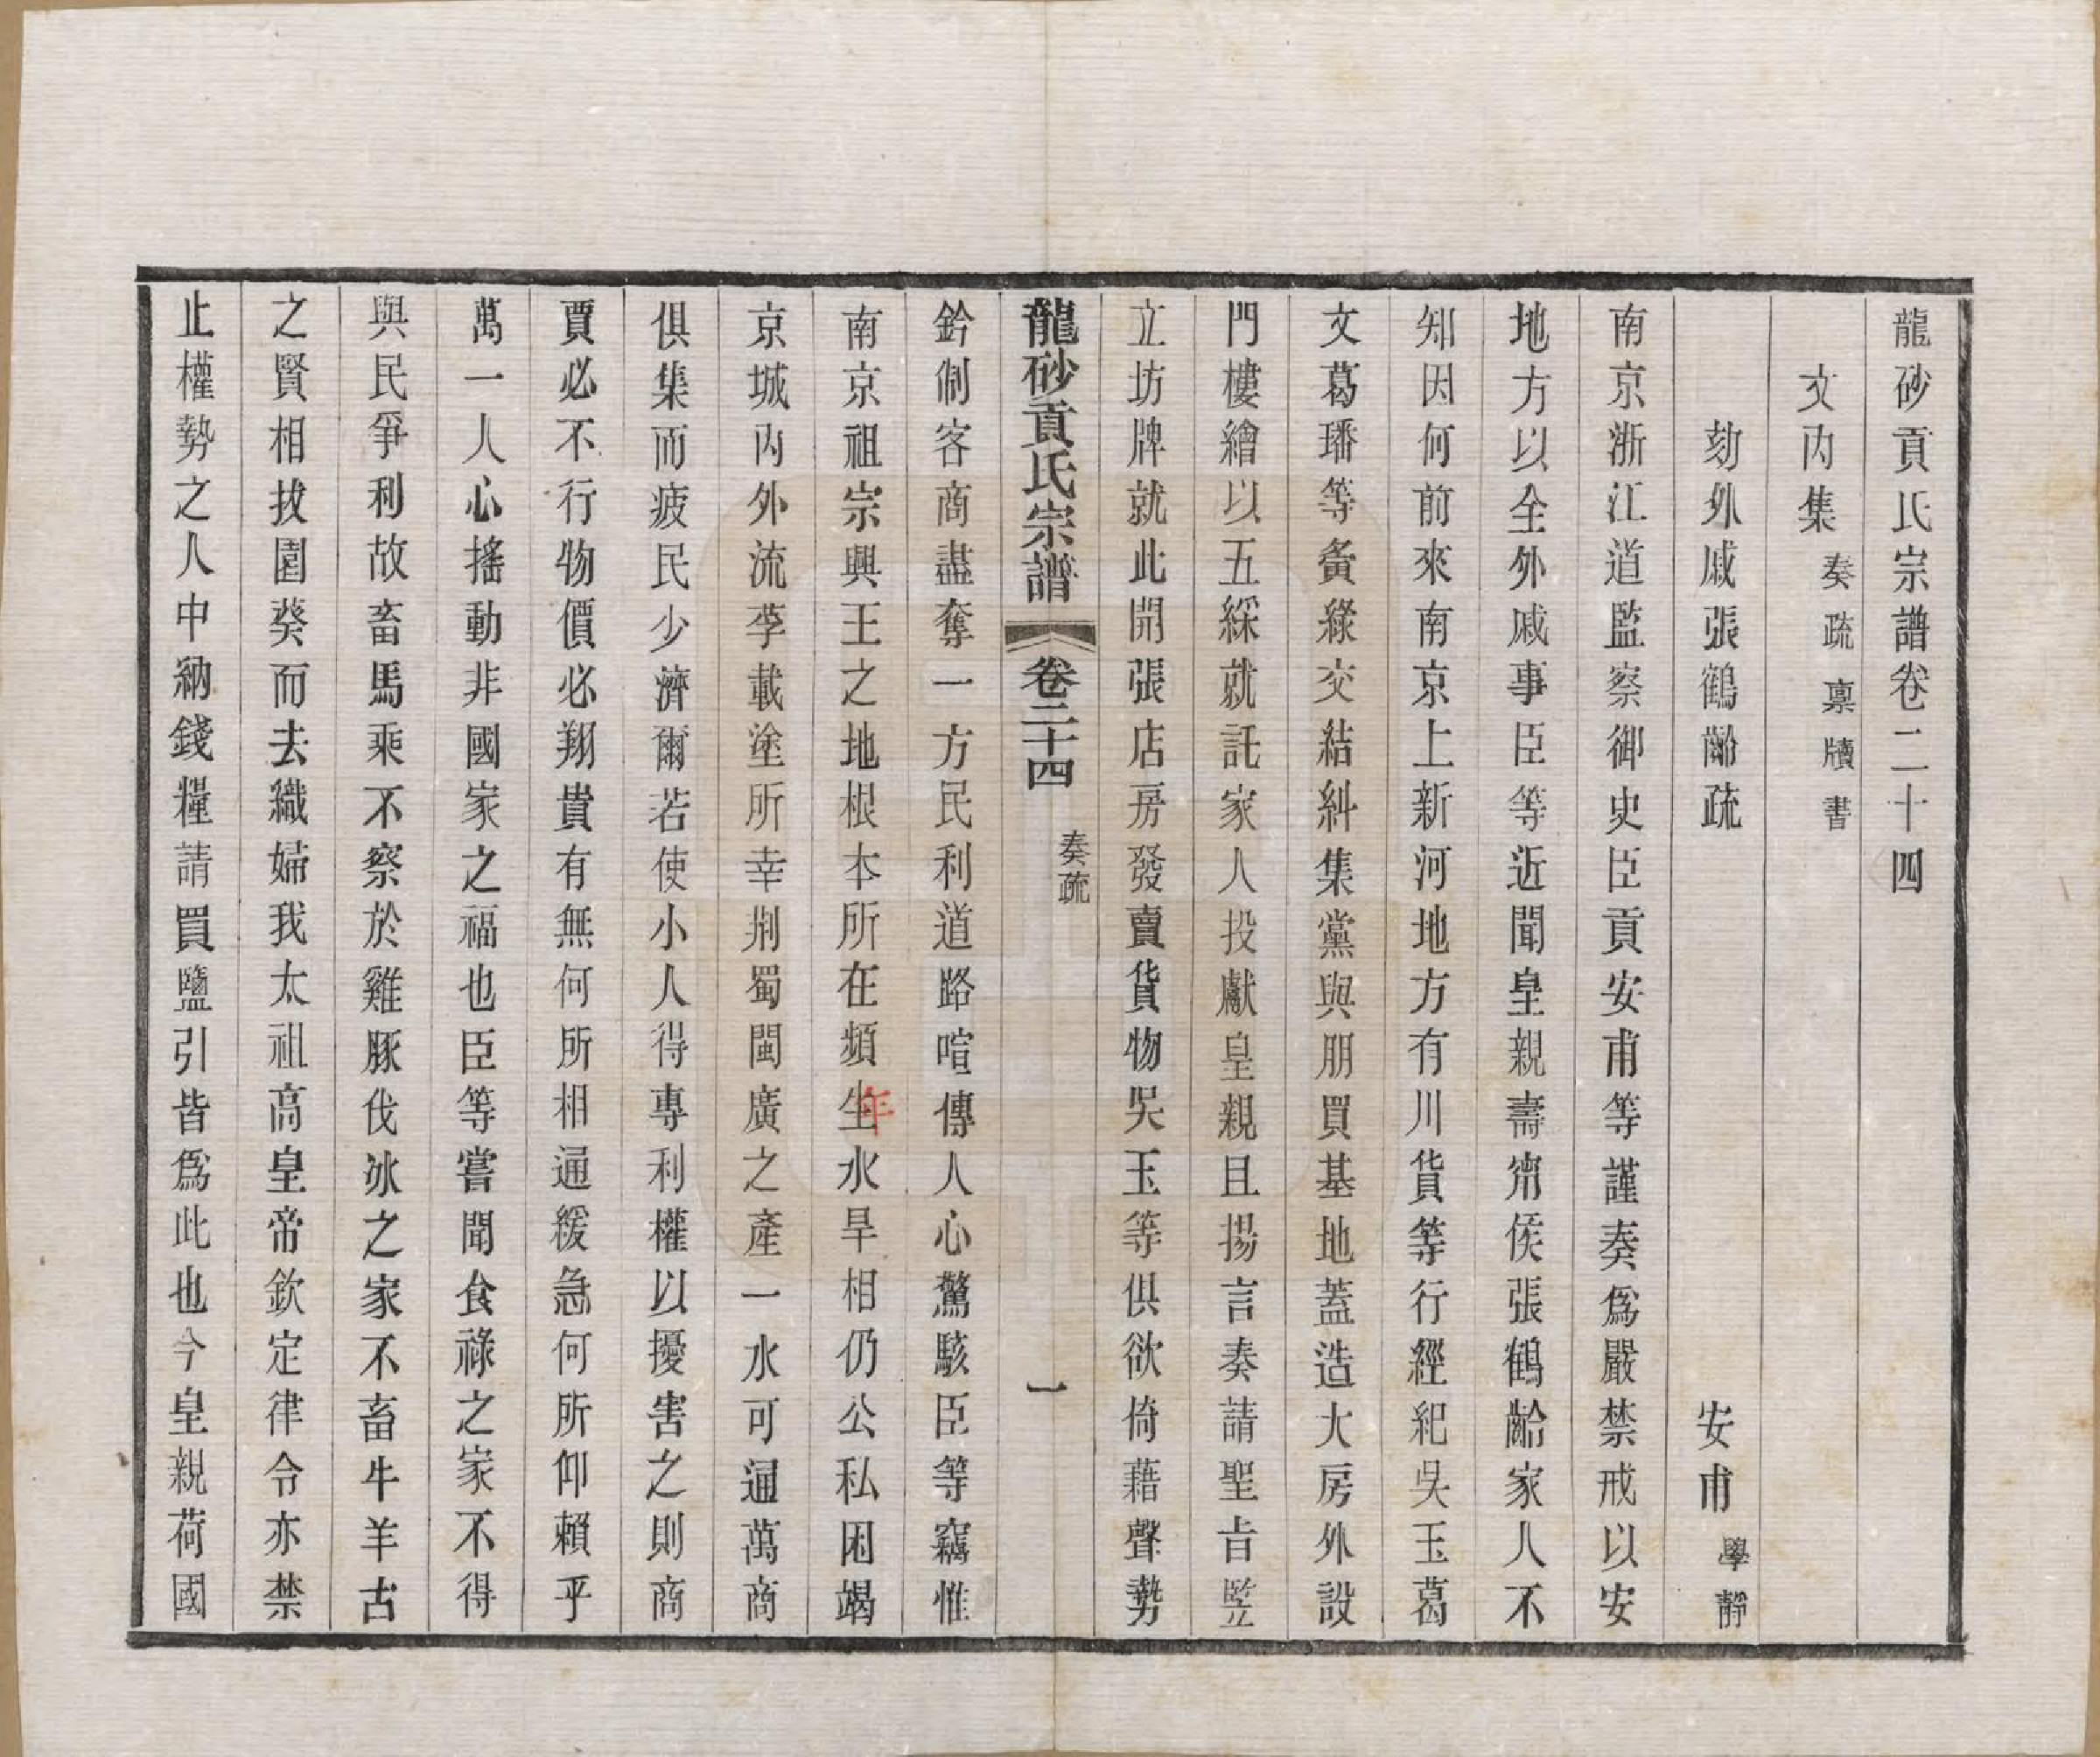 龍砂貢氏宗譜卷二十四
文內集 奏疏 稟牘 書
劾外戚張鶴齡疏 安甫 學靜
南京浙江道監察御史臣貢安甫等謹奏爲嚴禁戒以安
地方以全外戚事臣等近聞皇親壽甯侯張鶴齡家人不
知因何前來南京上新河地方有川貨等行經紀吳玉葛
文葛璠等夤緣交結糾集黨與朋買基地蓋造大房外設
門樓繪以五綵就託家人投獻皇親且揚言奏請聖旨豎
立坊牌就此開張店房發賣貨物吳玉等俱欲倚藉聲勢
龍砂貢氏宗譜 卷二十四 奏疏 一
鈐制客商盡奪一方民利道路喧傳人心驚駭臣等竊惟
南京祖宗興王之地根本所在頻年水旱相仍公私困竭
京城內外流莩載塗所幸荆蜀閩廣之產一水可通萬商
俱集而疲民少濟爾若使小人得專利權以擾害之則商
賈必不行物價必翔貴有無何所相通緩急何所仰賴乎
萬一人心搖動非國家之福也臣等嘗聞食祿之家不得
與民爭利故畜馬乘不察於雞豚伐冰之家不畜牛羊古
之賢相拔園葵而去織婦我太祖高皇帝欽定律令亦禁
止權勢之人中納錢糧請買鹽引皆爲此也今皇親荷國